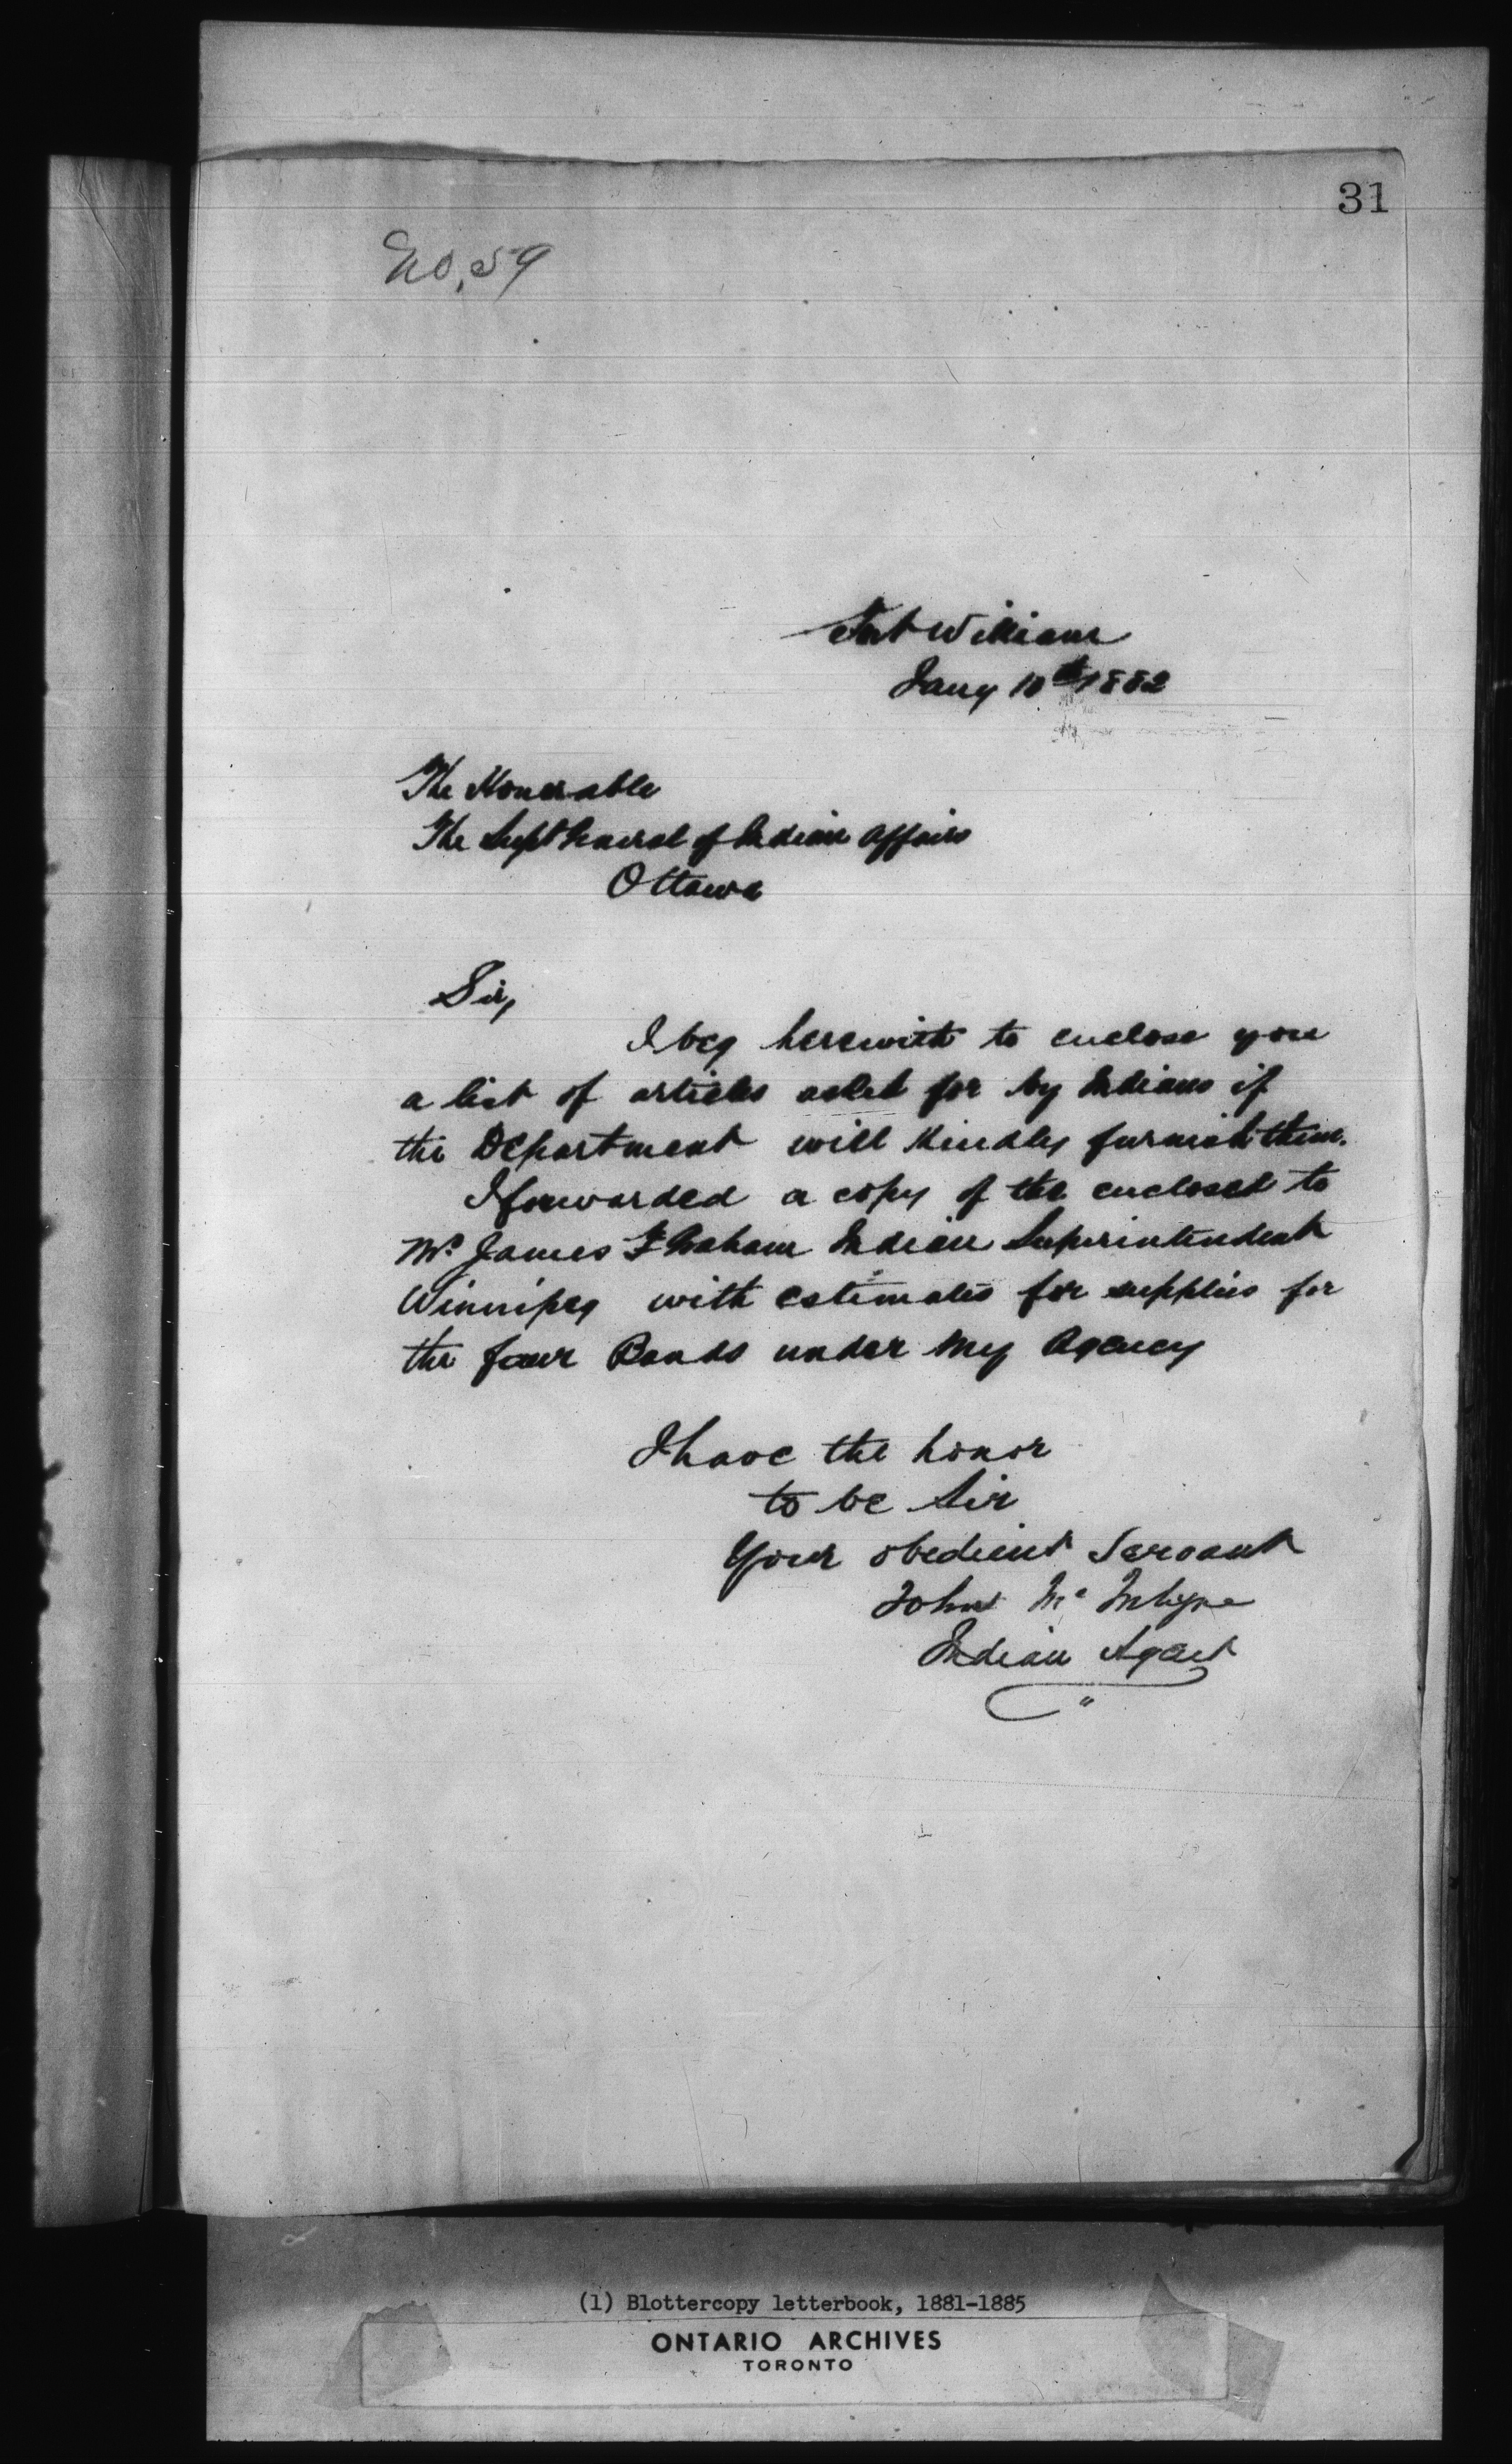 31
No. 59
Fort William
Jany 10th 1882
The Honorable
The Supt General of Indian Affairs
Ottawa
Sir,
I beg herewith to enclose you
a list of articles asked for by Indians if
the Department will kindly furnish them.
I forwarded a copy of the enclosed to
Mr James F Graham Indian Superintendent
Winnipeg with estimates for supplies for
the four Bands under my Agency
I have the honor
to be Sir
Your obedient Servant
John Mc Intyre
Indian Agent
(1) Blottercopy letterbook, 1881-1885
ONTARIO ARCHIVES
TORONTO